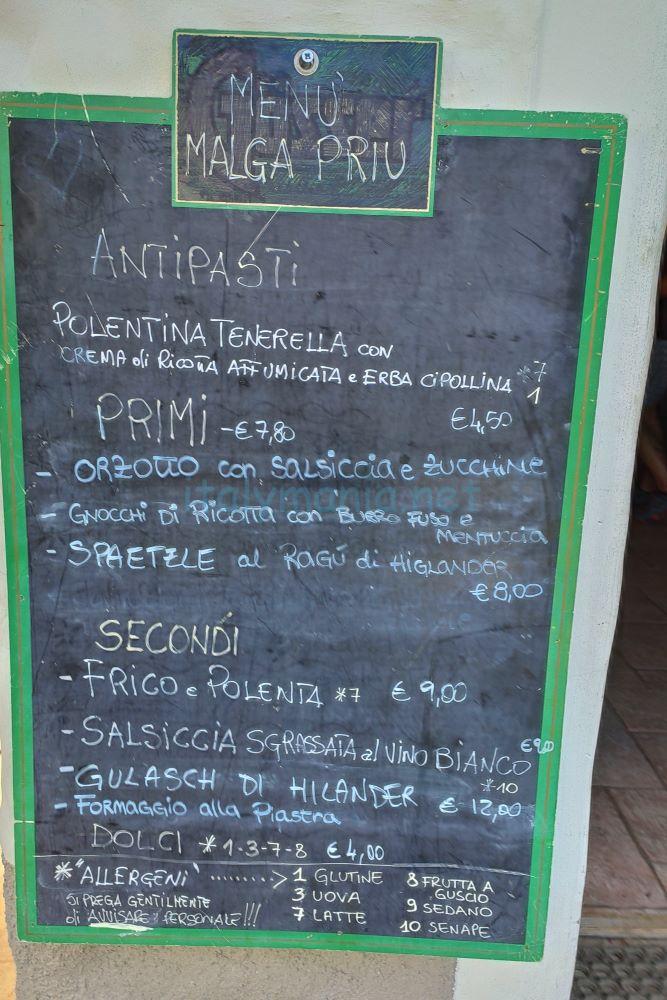 MENU'
MALGA PRIU
ANTIPASTI
POLENTINA TENERELLA con
CREMA di RICOTTA AFFUMICATA e ERBA CIPOLLINA *7
1
€4,50
PRIMI - €7,80
- ORZOTTO con SALSICCIA e ZUCCHINE
italymania.net
- GNOCCHI DI RICOTTA con BURRO FUSO e
MENTUCCIA
- SPAETZLE al RAGÚ di HIGLANDER
€8,00
SECONDI
- FRICO e POLENTA *7 € 9,00
- SALSICCIA SGRASSATA al VINO BIANCO
*10
- GULASCH DI HILANDER € 12,00
- FORMAGGIO alla Piastra
DOLCI *1-3-7-8 €4,00
* "ALLERGENI" ········>
SI PREGA GENTILMENTE
di AVVISARE il PERSONALE!!!
1 GLUTINE
3 UOVA
7 LATTE
8 FRUTTA A
GUSCIO
9 SEDANO
10 SENAPE